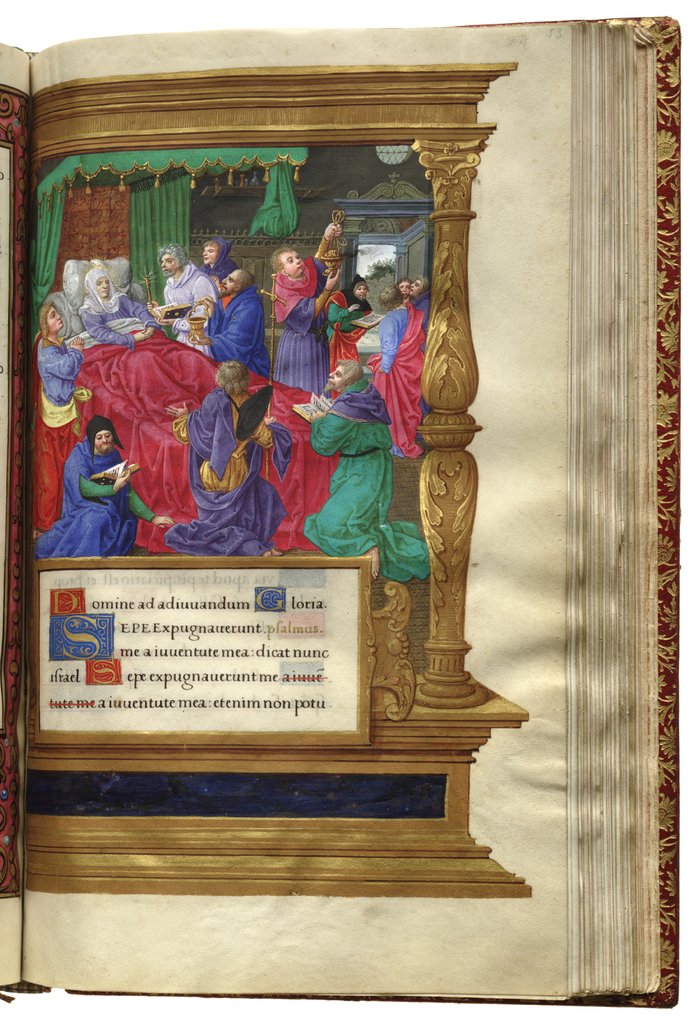 53
Domine ad adiuuandum Gloria.
SEPE Expugnauerunt psalmus.
me a iuuentute mea: dicat nunc
israel Sepe expugnauerunt me a iuuē-
tute me a iuuentute mea: etenim non potu